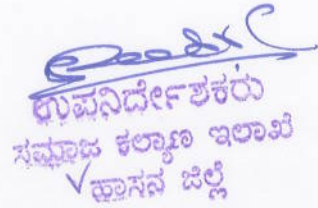 ಉಪನಿರ್ದೇಶಕರು
ಸಮಾಜ ಕಲ್ಯಾಣ ಇಲಾಖೆ
ಹಾಸನ ಜಿಲ್ಲೆ